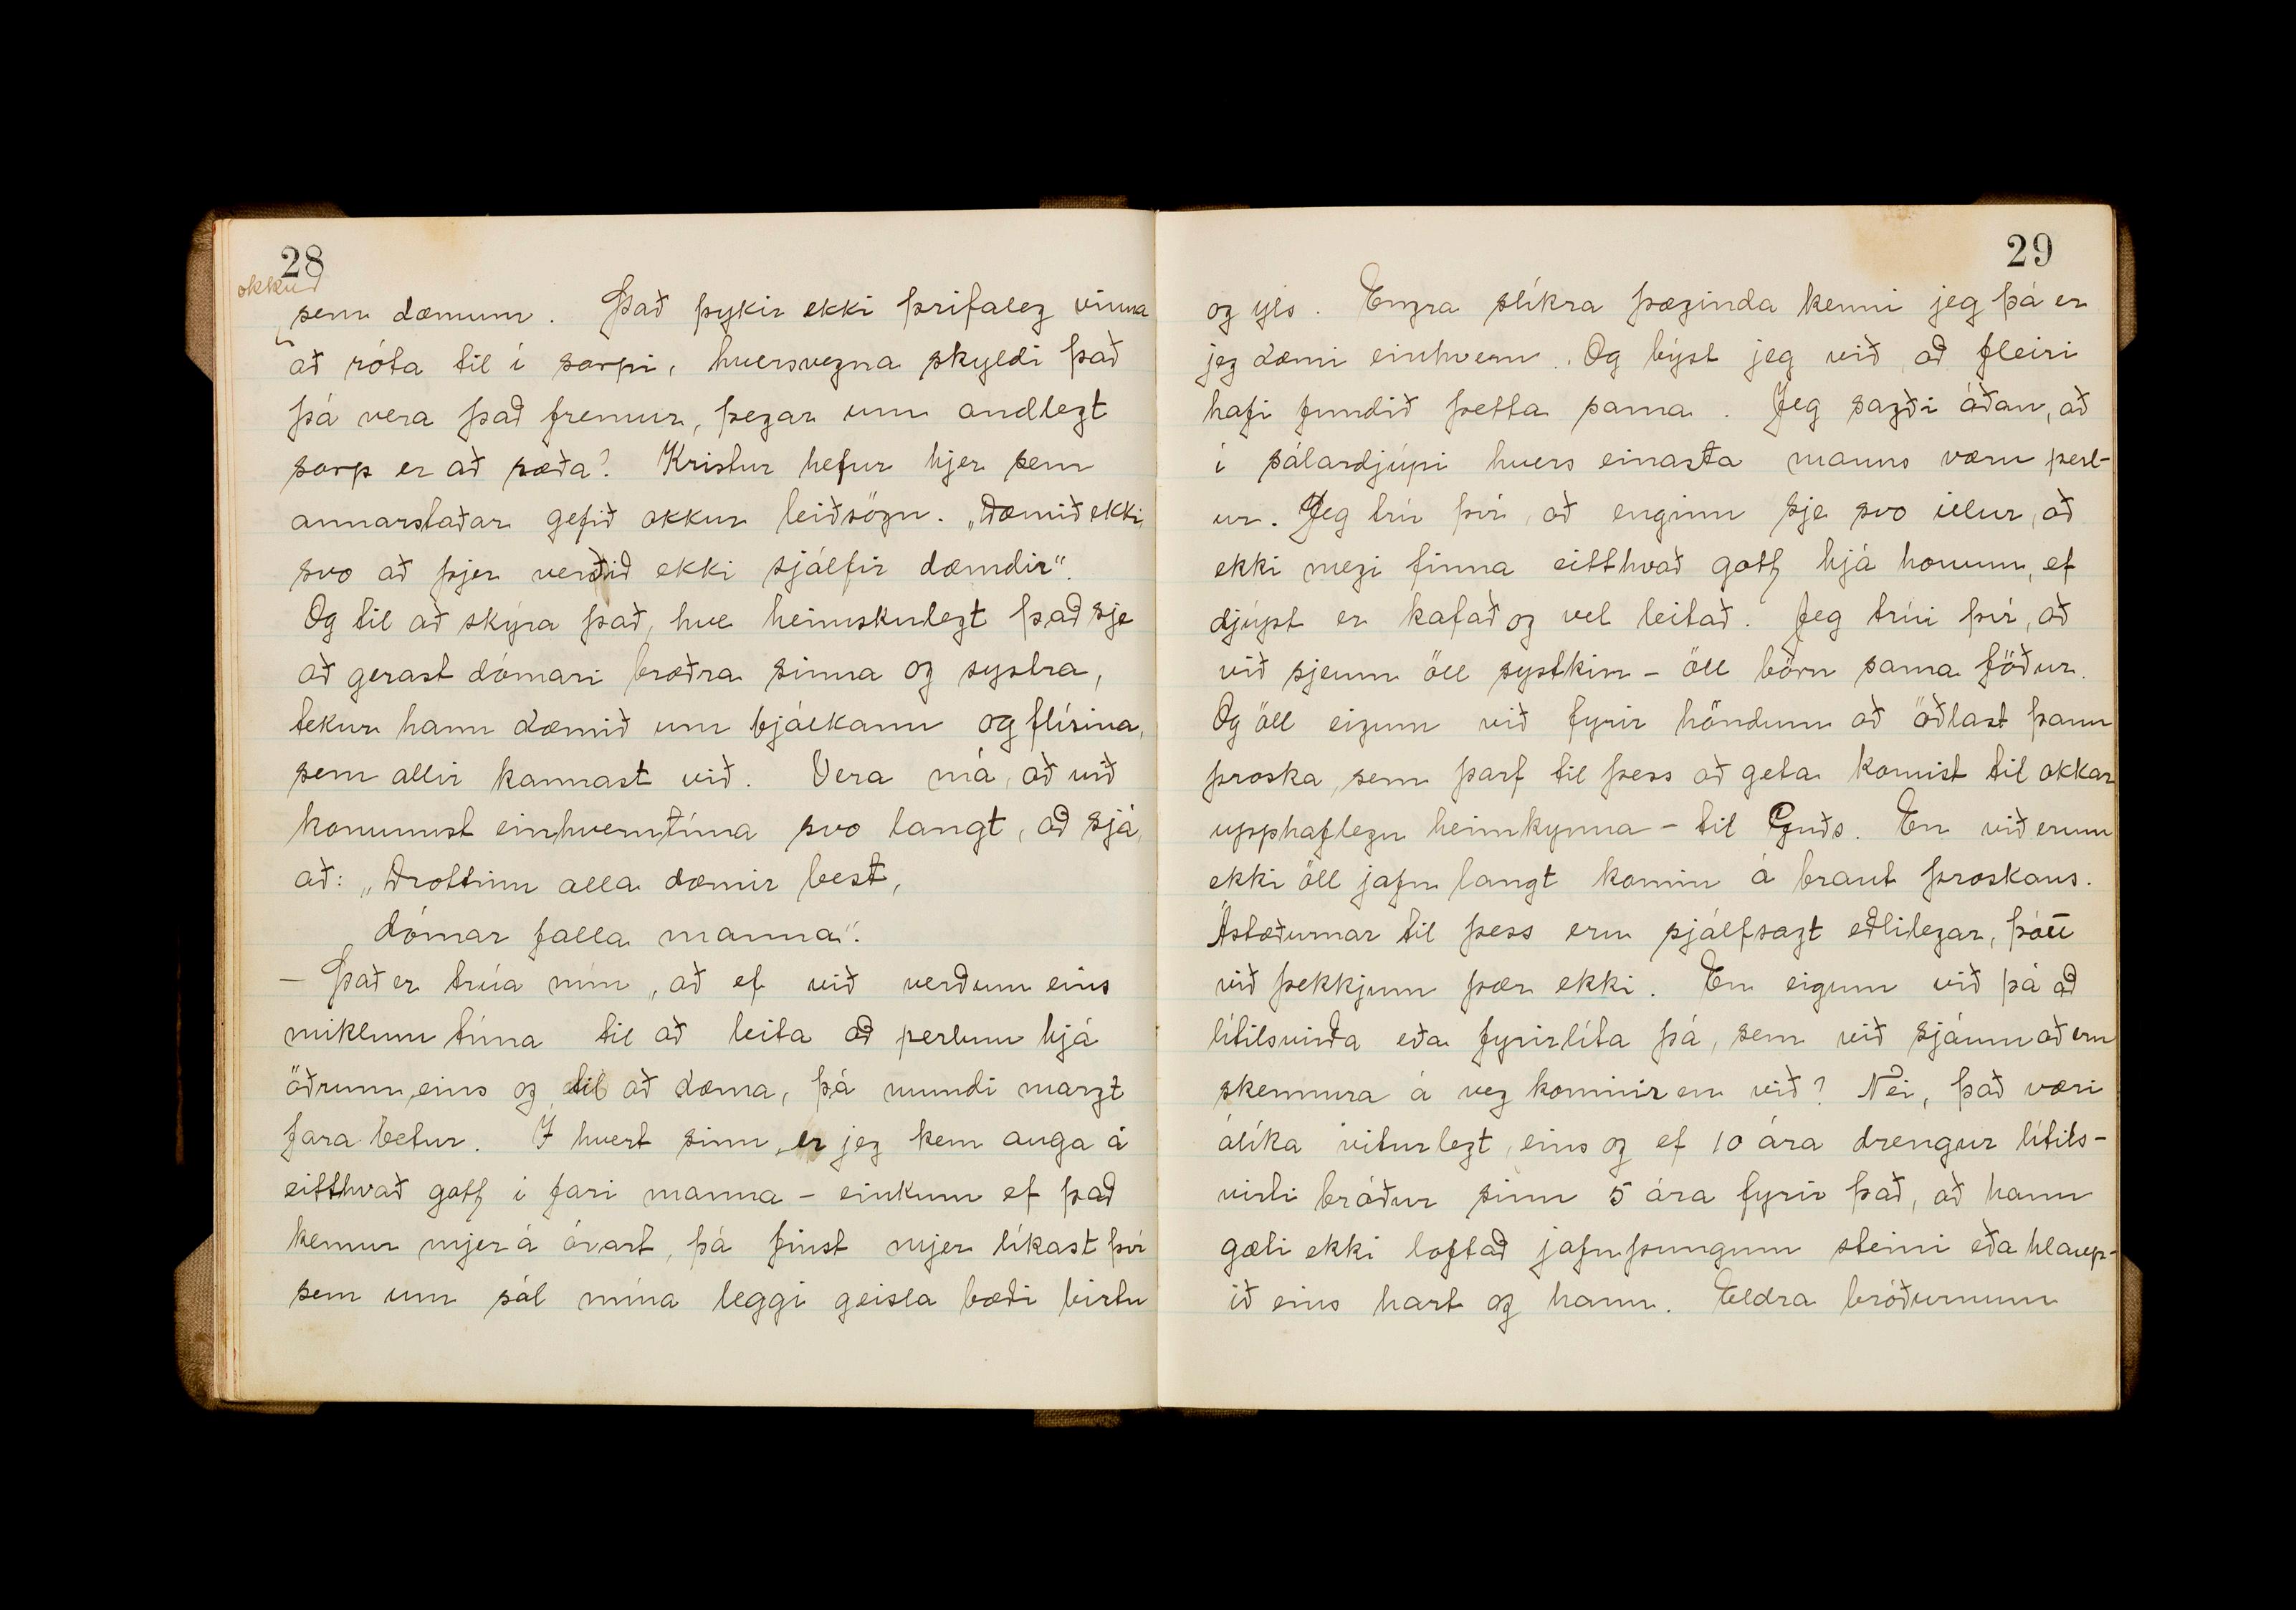 28
okkur
sem dæmum. Það þykir ekki þrifaleg vinna
að róta til í sorpi, hversvegna skyldi það
þá vera það fremur, þegar um andlegt
sorp er að ræða? Kristur hefur hjer sem
annarstaðar gefið okkur leiðsögn. „Dæmið ekki,
svo að þjer verðið ekki sjálfir dæmdir".
Og til að skýra það, hve heimskulegt það sje
að gerast dómari bræðra sinna og systra,
tekur hann dæmið um bjálkann og flísina,
sem allir kannast við. Vera má, að við
komumst einhverntíma svo langt, að sjá,
að: „Drottinn alla dæmir best,
dómar falla manna".
- Það er trúa mín, að ef við verðum eins
miklum tíma til að leita að perlum hjá
öðrum, eins og til að dæma, þá mundi margt
fara betur. Í hvert sinn, er jeg kem auga á
eitthvað gott í fari manna - einkum ef það
kemur mjer á óvart, þá finst mjer líkast því
sem um sál mína leggi geisla bæði birtu
29
og yls. Engra slíkra þæginda kenni jeg þá er
jeg dæmi einhvern. Og býst jeg við, að fleiri
hafi fundið þetta sama. Jeg sagði áðan, að
í sálardjúpi hvers einasta manns væru perl-
ur. Jeg trúi því, að enginn sje svo illur, að
ekki megi finna eitthvað gott hjá honum, ef
djúpt er kafað og vel leitað. Jeg trúi því, að
við sjeum öll systkin - öll börn sama föður.
Og öll eigum við fyrir höndum að öðlast þann
þroska, sem þarf til þess að geta komist til okkar
upphaflegu heimkynna - til Guðs. En við erum
ekki öll jafn langt komin á braut þroskans.
Ástæðurnar til þess eru sjálfsagt eðlilegar, þótt
við þekkjum þær ekki. En eigum við þá að
lítilsvirða eða fyrirlíta þá, sem við sjáum að eru
skemmra á veg komnir en við? Nei, það væri
álíka viturlegt, eins og ef 10 ára drengur lítils-
virti bróður sinn 5 ára fyrir það, að hann
gæti ekki loftað jafnþungum steini eða hlaup-
ið eins hart og hann. Eldra bróðurnum